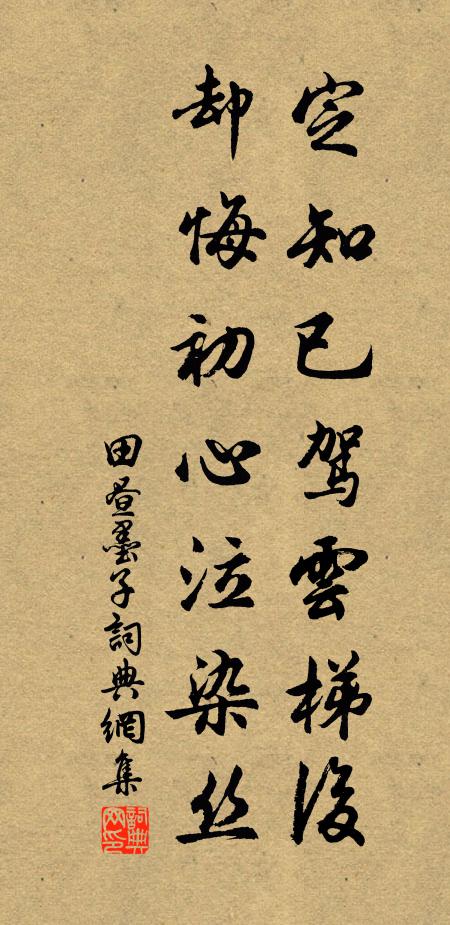 定知已驾雲梯後
却悔初心泣染丝
田昼墨子詞典網集
詞典网印